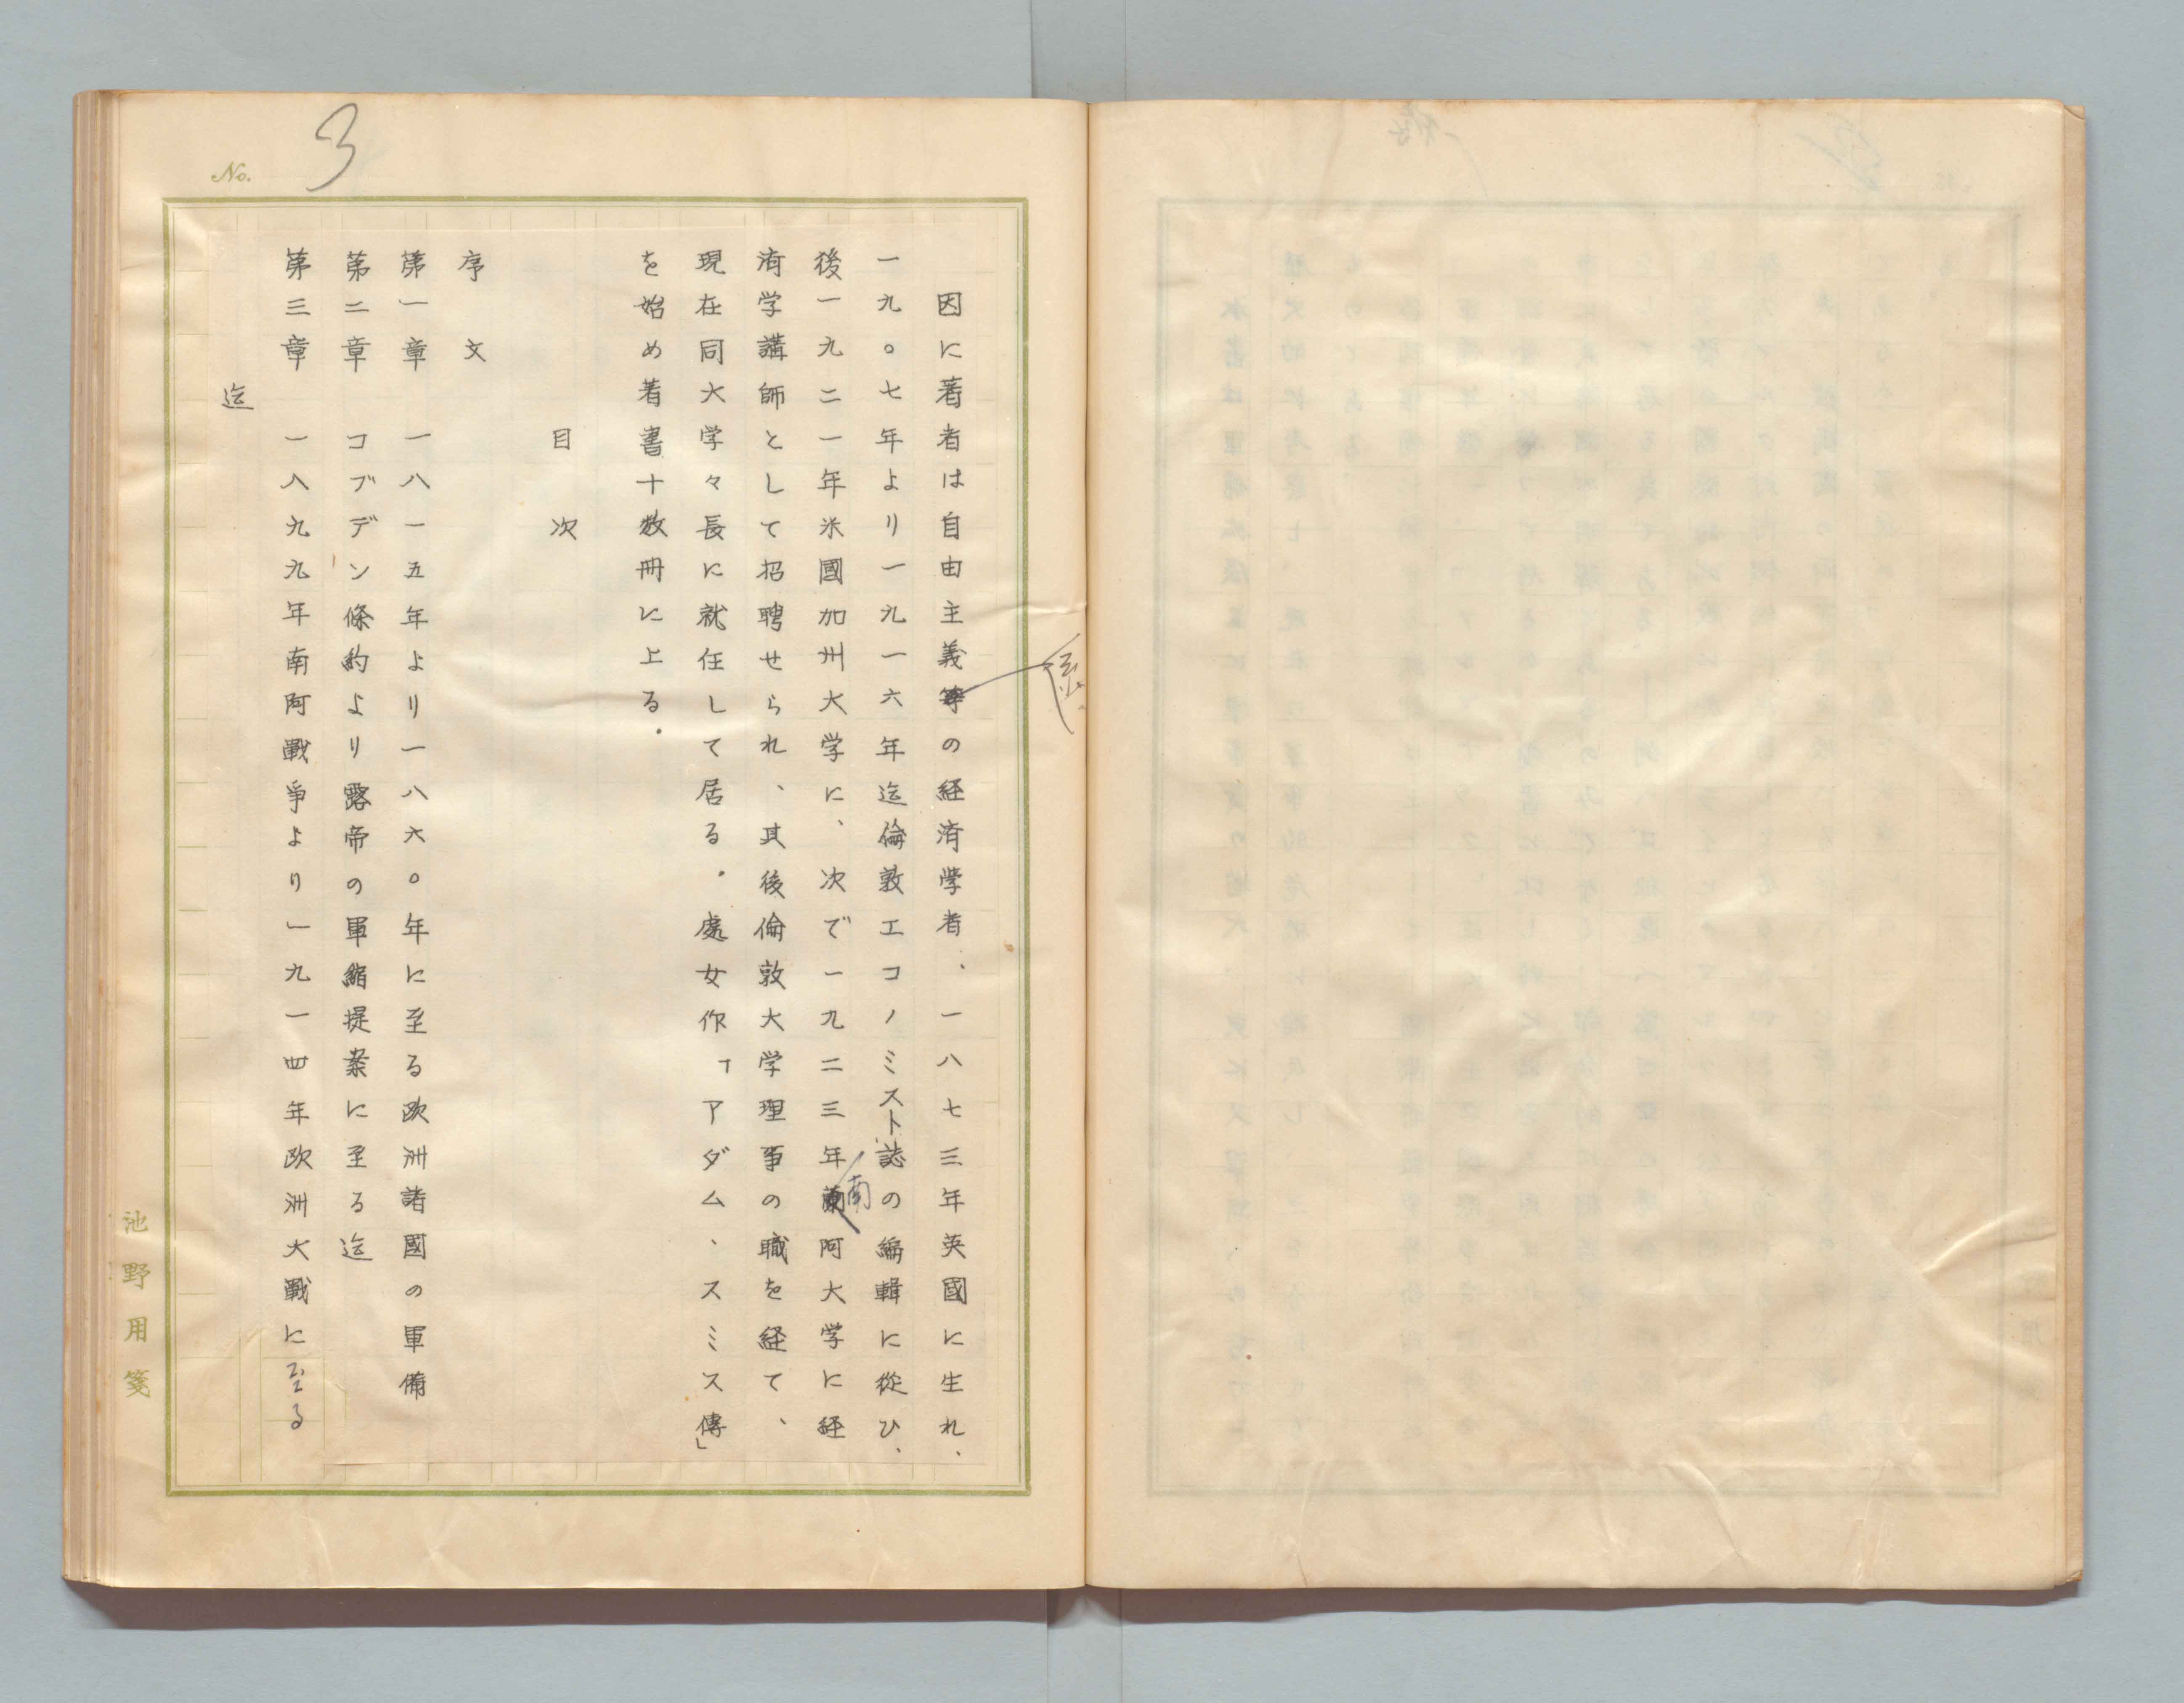 No. 3
因に著者は自由主義の経済学者、一八七三年英國に生れ、
一九〇七年より一九一六年迄倫敦エコノミスト誌の編輯に從ひ、
後一九二一年米國加州大学に、次で一九二三年南阿大学に経
済学講師として招聘せられ、其後倫敦大学理事の職を経て、
現在同大学々長に就任して居る。處女作「アダム、スミス傳」
を始め著書十数冊に上る。
目次
序文
第一章 一八一五年より一八六〇年に至る欧洲諸國の軍備
第二章 コブデン條約より露帝の軍縮提案に至る迄
第三章 一八九九年南阿戰爭より一九一四年欧洲大戰に至る
迄
池野用箋